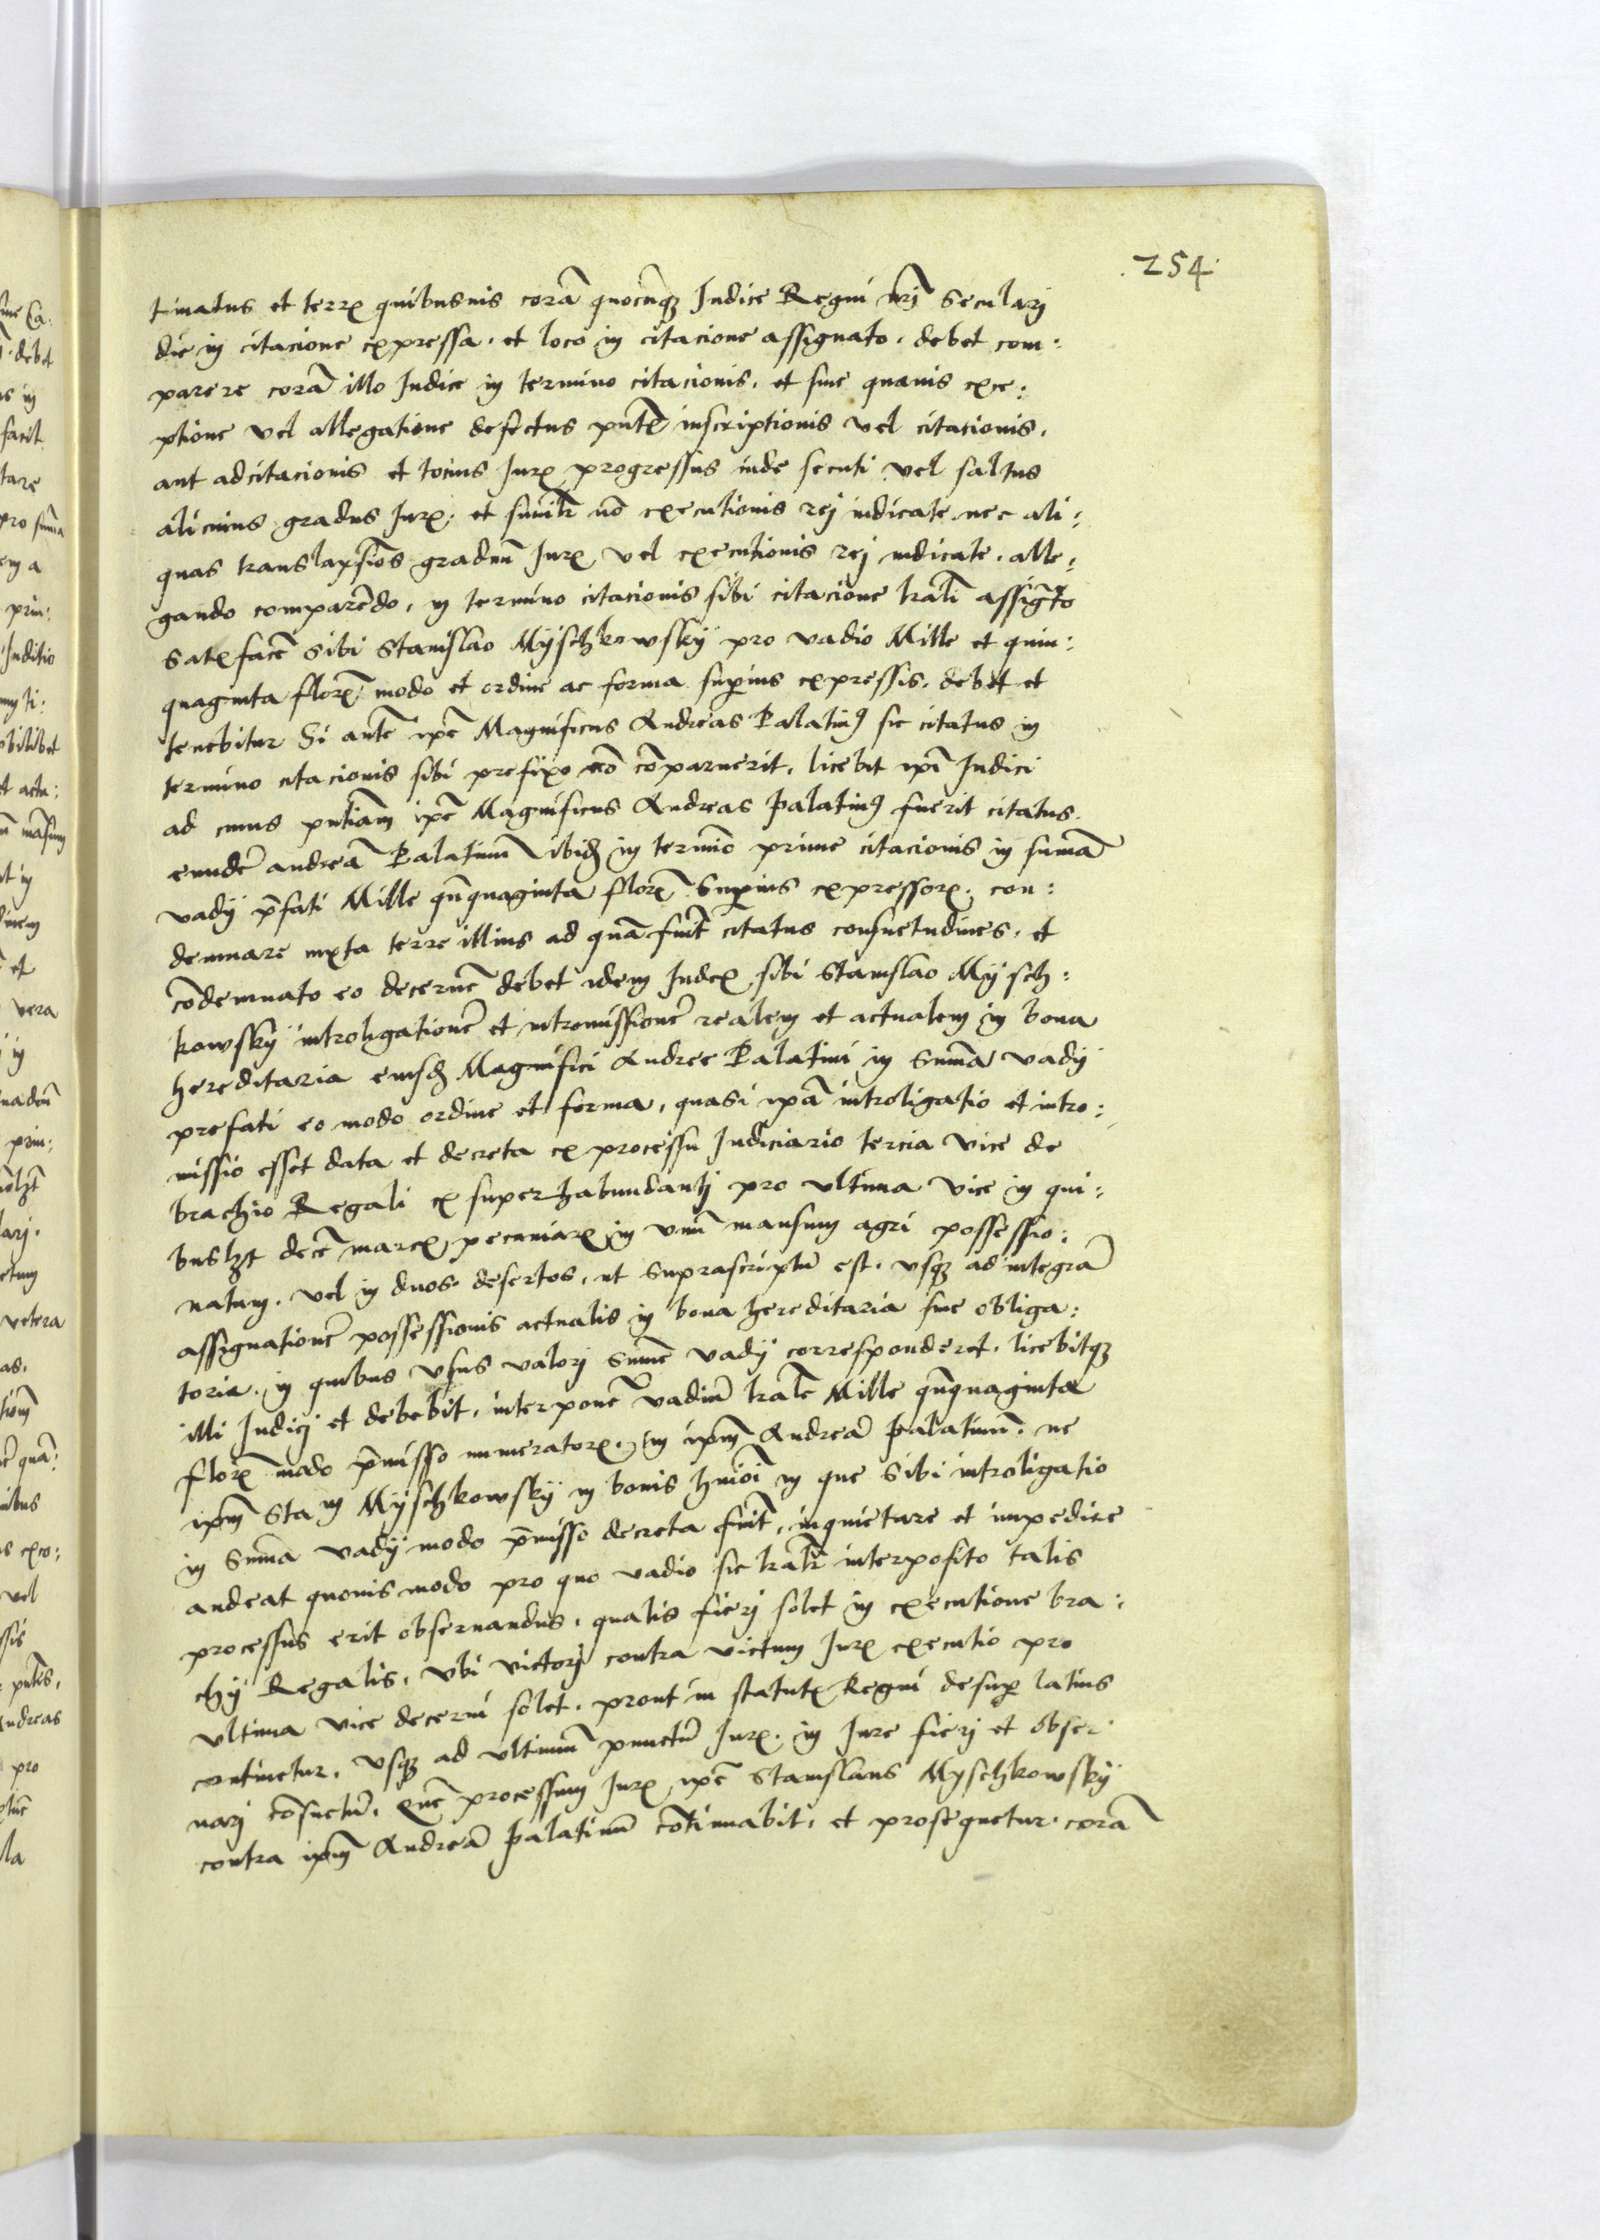 254
tinatus et terrꝭ quibusuis corā quocūqꝫ Judice Regni nrj̄ Secularj
die in citacione expressa. et loco in citacione assignato. debet com:
parere corā illo Judice in termino citacionis. et sine quauis exce:
ptione vel allegatione defectus pn̄tꝭ inscriptionis vel citacionis.
aut adcitacionis et tocius Jurꝭ progressus inde secuti vel saltus
alicuius gradus Jurꝭ. et simil̄r nō executionis rej iudicate nec ali:
quas translapsiōs graduū Jurꝭ vel executionis rej iudicate. alle:
gando comparēdo. in termino citacionis sibi citacione tralī assigto
Satꝭfacē sibi Stanislao Mÿschkowskÿ pro vadio Mille et quin:
quaginta florꝭ. modo et ordine ac forma supius expressis. debet et
tenebitur Si autē ipē Magnificus Andreas Palatinꝯ sic citatus in
termino citacionis sibi prefixo nō cōparuerit. licebit ipī Judici
ad cuius pn̄tiam ipē Magnificus Andreas Palatinꝯ fuerit citatus.
eundē andreā Palatinū ibid in termīo prime citacionis in sumā
vadÿ p̄fati Mille qn̄quaginta florꝭ Supius expressorꝭ. con:
demnare iuxta terre illius ad quā fuit̄ citatus consuetudines. et
cōdemnato eo decernē debet idem Judex sibi Stanislao Mÿsch:
kowskÿ introligationē et intromissionē realem et actualem in bona
hereditaria eiusd Magnifici Andree Palatini in Sumā vadÿ
prefati eo modo ordine et forma, quasi ipā introligatio et intro:
missio esset data et decreta ex processu Judiciario tercia vice de
brachio Regali ex superhabundantj pro vltima vice in qui:
buslꝫt decē marcꝭ pecuniarꝭ in vnū mansum agri possessio:
natum. vel in duos desertos. ut suprascriptū est. vsqꝫ ad integrā
assignationē possessionis actualis in bona hereditaria siue obliga:
toria. in quibus vsus valorj sumē vadÿ corresponderet. licebitqꝫ
illi Judicj et debebit. interponē vadiū tralē Mille qn̄quaginta
florꝭ modo p̄misso numeratorꝭ. in ipm̄ Andreā Palatinū. ne
ipm̄ Sta m̄ Mÿschkowskÿ in bonis hmōi in que sibi introligatio
in Sumā vadÿ modo p̄misso decreta fuit̄, inquietare et impedire
audeat quouismodo pro quo vadio sic tralr̄ interposito talis
processus erit obseruandus. qualis fierj solet in executione bra:
chÿ Regalis. vbi victorj contra victum Jurꝭ executio pro
vltima vice decerni solet. prout in statutꝭ Regni desup latius
continetur. vsqꝫ ad vltimum punctū Jurꝭ. in Jure fierj et obser
uarj cōsuetū. Quē processum Jurꝭ ipē Stanislaus Myschkowskÿ
contra ipm̄ Andreā Palatinū cōtinuabit. et prosequetur. corā